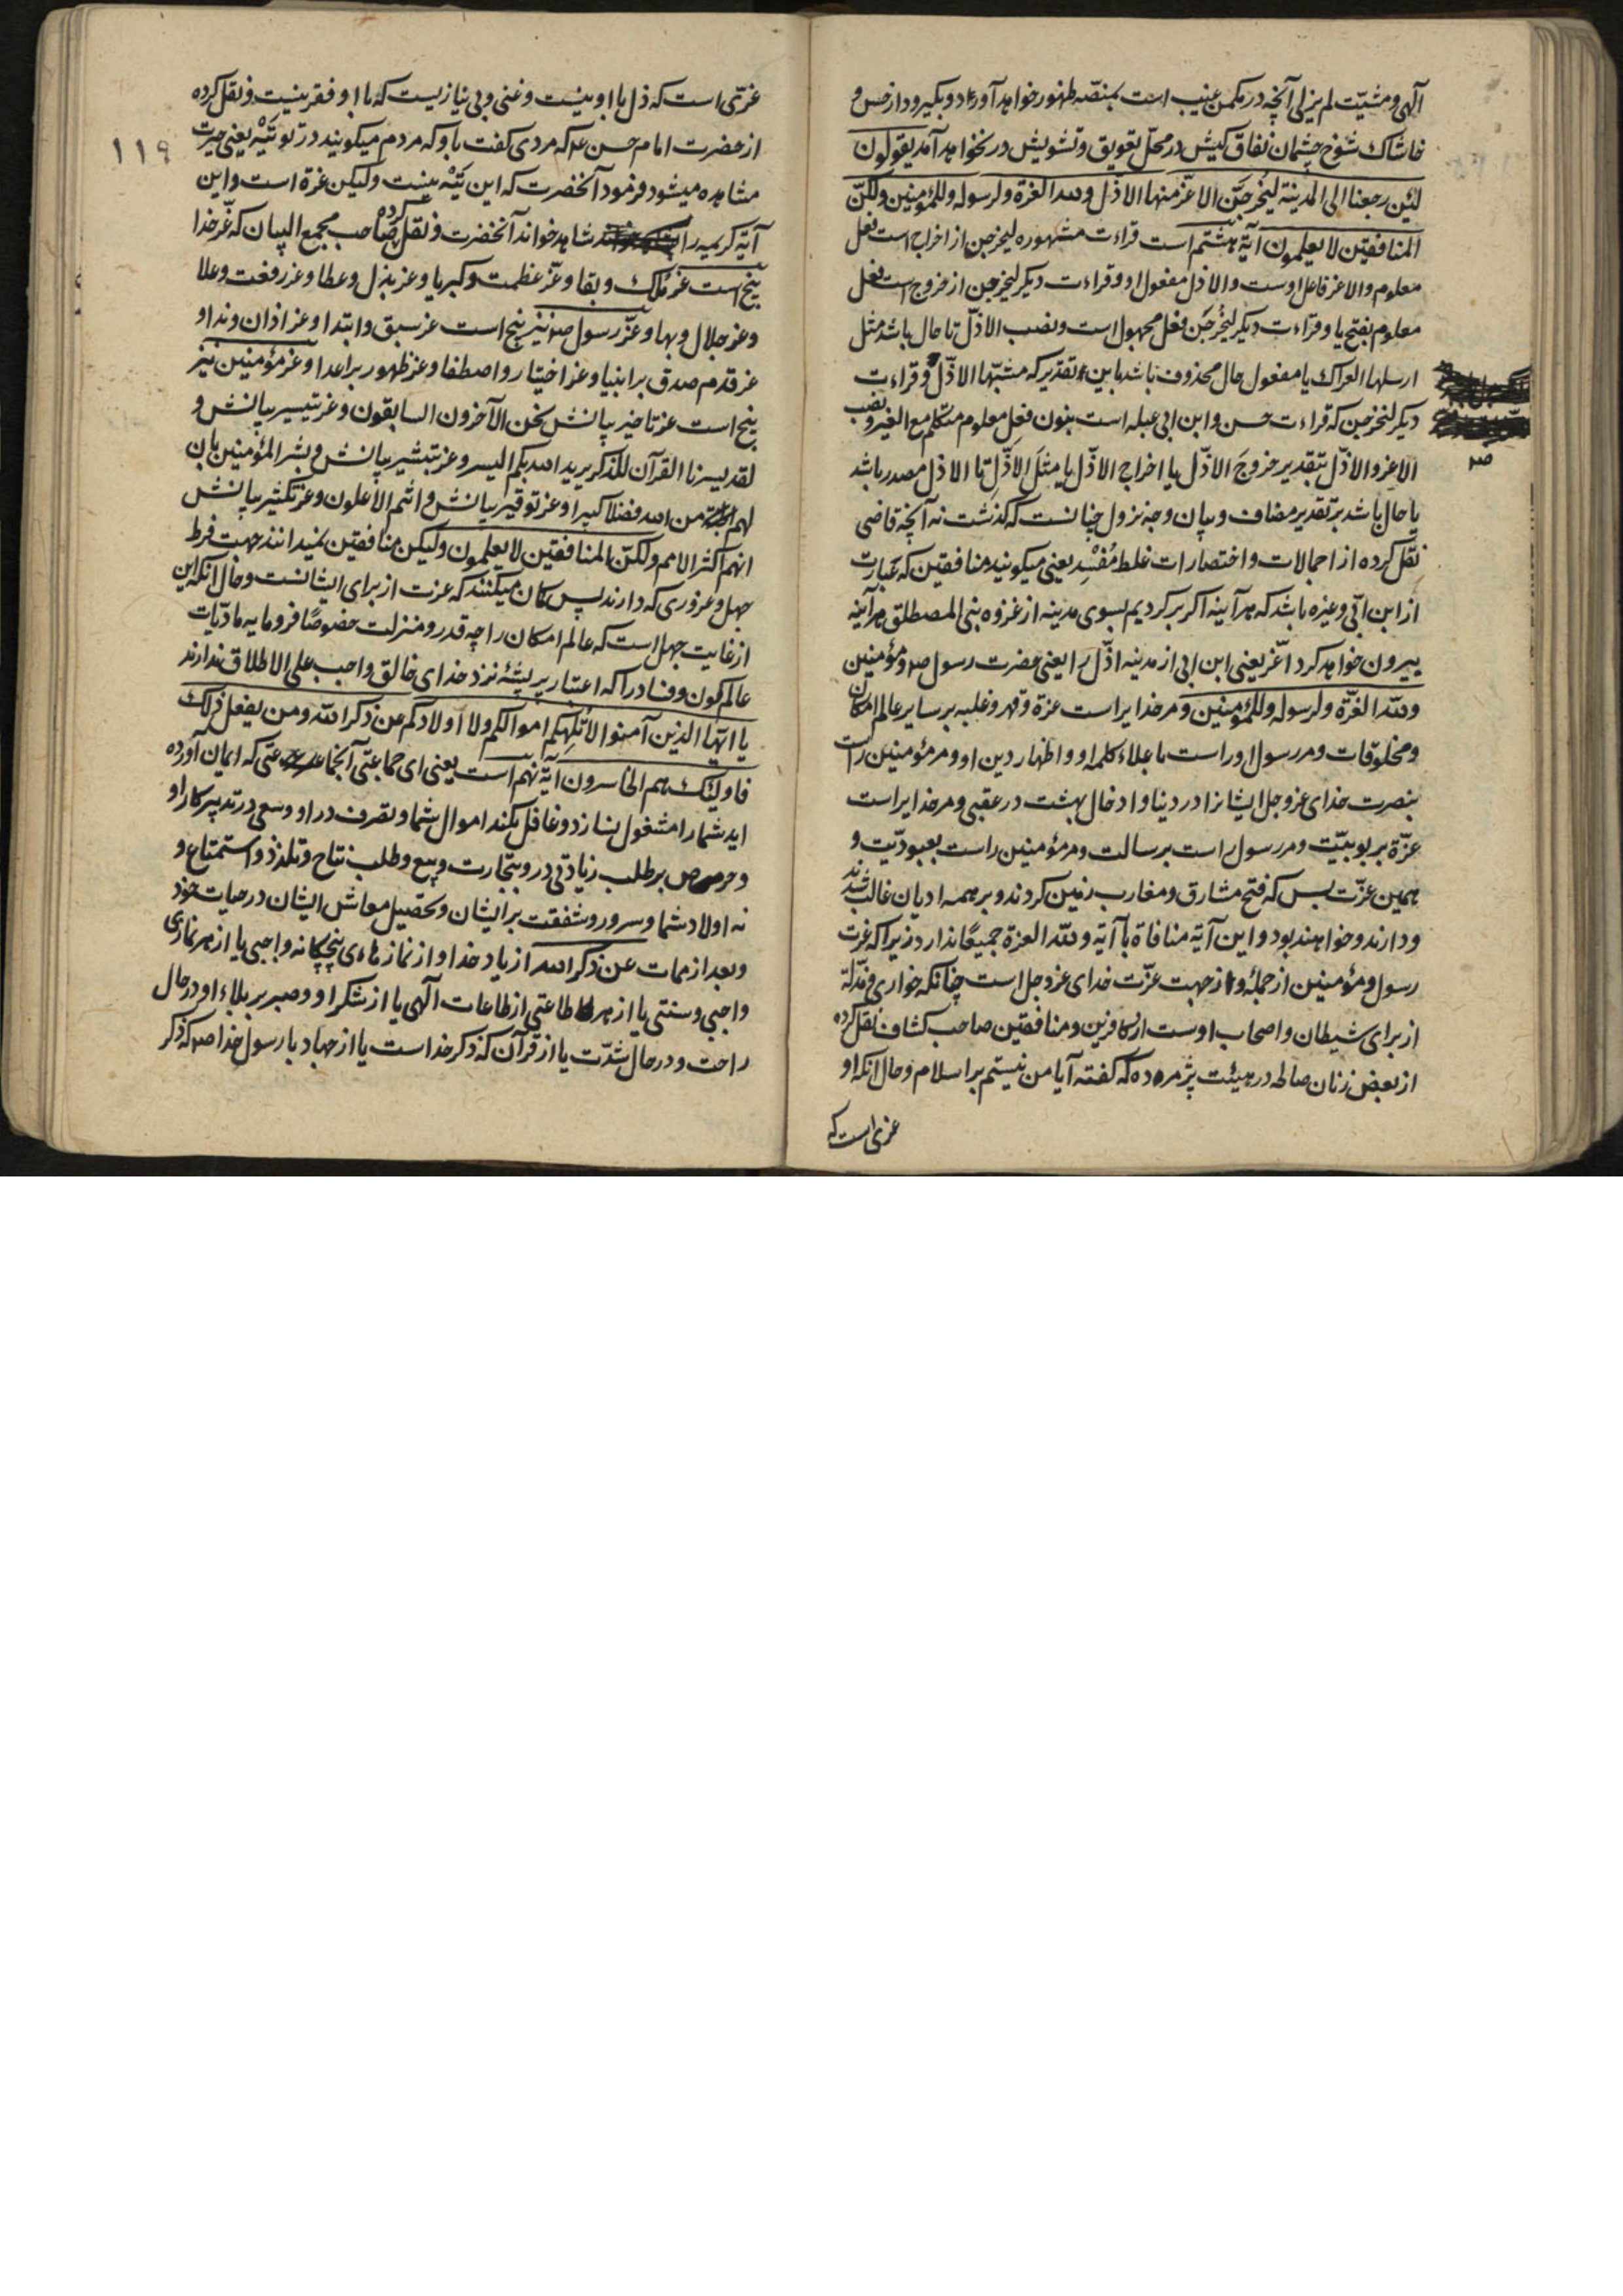 الهی و مشیّت لم یزلی آنچه در مکمن غیب است بمنصّه ظهور خواهد آورد و بگیر و دار خس و
خاشاک شوخ چشمان نفاق کیش در محلّ تعویق و تشویش در نخواهد آمد یقولون
لئن رجعنا الی المدینة لیُخرجَنَّ الاعزّ منها الاذلّ ولله العزة و لرسوله و للمؤمنین و لکنّ
المنافقین لا یعلمون آیهٔ هشتم است قراءت مشهوره لیخرجن از اخراج است فعل
معلوم و الاعز فاعل اوست و الاذل مفعول او و قراءت دیکر لیخرجن از خروج است فعل
معلوم بفتح یا و قراءت دیکر لیُخرجَن فعل مجهول است و نصب الاذلّ تا حال باشد مثل
ارسلها العراک یا مفعول حال محذوف باشد باین تقدیر که مشبّها الاذلّ و قراءت
دیکر لنخرجن که قراءت حسن و ابن ابی عبله است بنون فعل معلوم متکلّم مع الغیر و نصب
الاعز و الاذلّ بتقدیر خروجَ الاذلّ یا اخراج الاذلّ یا مثلَ الاذلِّ تا الاذل مصدر باشد
یا حال باشد بر تقدیر مضاف و بیان وجه نزول چنانست که گذشت نه آنچه قاضی
نقل کرده از اجمالات و اختصارات غلط مُفْسِد یعنی میکویند منافقین که عبارت
از ابن ابّی و غیره باشد که هرآینه اکر برکردیم بسوی مدینه از غزوه بنی المصطلق هرآینه
بیرون خواهد کرد اعّز یعنی ابن ابی از مدینه اذّل را یعنی حضرت رسول ص و مؤمنین
ولله العزّة و لرسوله و للمؤمنین و مر خدایراست عزة و قهر و غلبه بر سایر عالم امکان
و مخلوقات و مر رسول اوراست باعلاء کلمه او و اظهار دین او و مر مؤمنین راست
بنصرت خدای عز و جل ایشانرا در دنیا و ادخال بهشت در عقبی و مر خدایراست
عزّة بربوبیّت و مر رسول راست برسالت و مر مؤمنین راست بعبودیّت و
همین عزّت بس که فتح مشارق و مغارب زمین کردند و بر همه ادیان غالب شدند
و دارند و خواهند بود و این آیة منافاة با آیة ولله العزة جمیعًا ندارد زیرا که عزت
رسول و مؤمنین از جمله و از جهت عزّت خدای عز و جل است چنانکه خواری و مذّلة
از برای شیطان و اصحاب اوست از کافرین و منافقین صاحب کشاف نقل کرده
از بعض زنان صالحه در هیئت پژمرده که کفته آیا من نیستم بر اسلام و حال آنکه او
عزی است که
ص
عزّتی است که ذل با او نیست و غنی و بی نیازیست که با او فقر نیست و نقل کرده
۱۱۹
از حضرت امام حسن ع که مردی کفت باو که مردم میکویند در تو تَیْه یعنی حیرت
مشاهده میشود فرمود آنحضرت که این تَیْه نیست و لیکن عزة است و این
آیة کریمه را شاهد خواند آنحضرت و نقل کرده صاحب مجمع البیان که عّز خدا
پنج است عّز مُلک و بقا و عّز عظمت و کبریا و عز بذل و عطا و عز رفعت و علا
و عز جلال و بها و عّز رسول ص نیز پنج است عز سبق و ابتدا و عز اذان و ندا و
عز قدم صدق بر انبیا و عز اختیار و اصطفا و عز ظهور بر اعدا و عز مؤمنین نیز
پنج است عز تاخیر بیانش نحن الآخرون السابقون و عز تیسیر بیانش و
لقد یسرنا القرآن للذکر یرید الله بکم الیسر و عز تبشیر بیانش و بشر المؤمنین بان
لهم من الله فضلا کبیرا و عز توقیر بیانش و انتم الاعلون و عز تکثیر بیانش
انهم اکثر الامم و لکنّ المنافقین لا یعلمون و لیکن منافقین نمیدانند جهت فرط
جهل و غروری که دارند پس کمان میکنند که عزت از برای ایشانست و حال آنکه این
از غایت جهل است که عالم امکان را چه قدر و منزلت خصوصًا فرومایه مادّیات
عالم کون و فساد را که اعتبار پر پشهٔ نزد خدای خالق واجب علی الاطلاق ندارند
یا ایّها الذین آمنوا لا تُلهِکم اموالکم و لا اولادکم عن ذکر الله و من یفعل ذلک
فاولئک هم الخاسرون آیة نهم است یعنی ای جماعتی که ایمان آورده
اید شما را مشغول نسازد و غافل نکند اموال شما و تصرف در او و سعی در تدبیر کار او
و حرص بر طلب زیادتی در و بتجارت و بیع و طلب نتاج و تلذذ و استمتاع و
نه اولاد شما و سرور و شفقت بر ایشان و تحصیل معاش ایشان در حیات خود
و بعد از ممات عن ذکر الله از یاد خدا و از نماز های پنجکانه واجبی یا از هر نمازی
واجبی و سنتی یا از هر طاعتی از طاعات الهی یا از شکر او و صبر بر بلاء او در حال
راحت و در حال شدّت یا از قرآن که ذکر خداست یا از جهاد با رسول خدا ص که ذکر